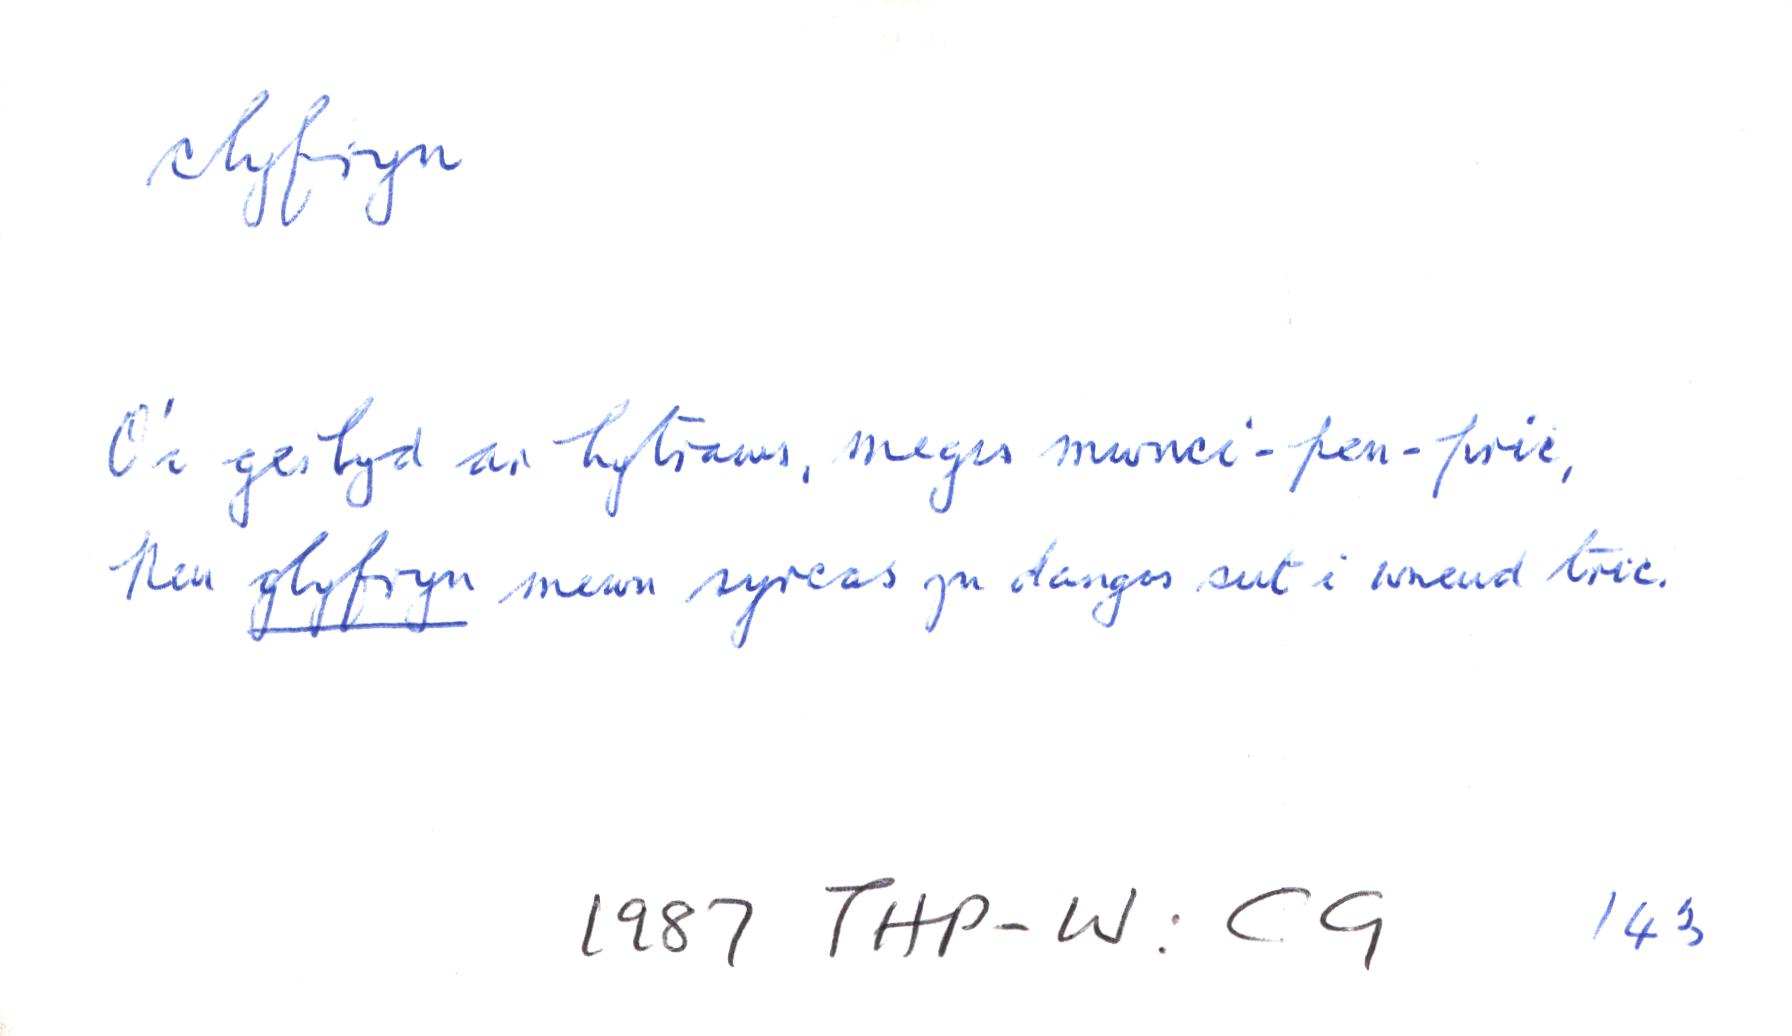 clyfryn
O'r gerbyd ar hytraws, megis mwnci-pen-pric,
Neu glyfryn mewn syrcas yn dangos sut i wneud tric.
1987 THP-W: CG 143